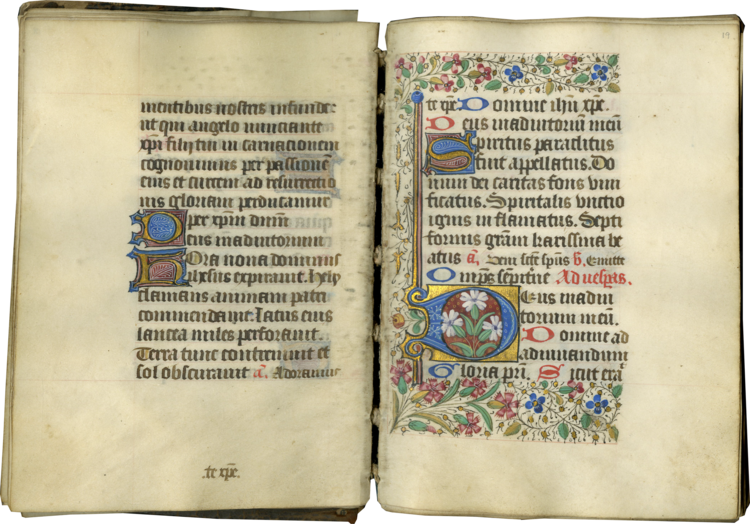 mentibus nostris infunde
ut qui angelo nunciante
xp̄i filii tui in carnacionem
cognouimus per passionē
eius et crucem ad resurrectio
nis gloriam perducamur
P per xp̄m dn̄m
Deus in adiutorium
Hora nona dominus
ihesus expirauit. hely
clamans animam patri
commendauit. Latus eius
lancea miles perforauit.
Terra tunc contremuit et
sol obscurauit aᷓ. Adoramus
te xp̄e.
19
te xp̄e Domine ihū xp̄e.
Deus in adiutoriū meū
Spiritus paraclitus
fuit appellatus. Do
num dei caritas fons viui
ficatus. Spiritalis vnctio
ignis in flamatus. Septi
formis grām karissima be
atus aᷓ. Veni sctē spūs v̄. Emitte
Omp̄s sempitn̄e Ad uesp̄as.
Deus in adiu
torium meū.
Domine ad
adiuuandum
Gloria pri̅. Sicut erā